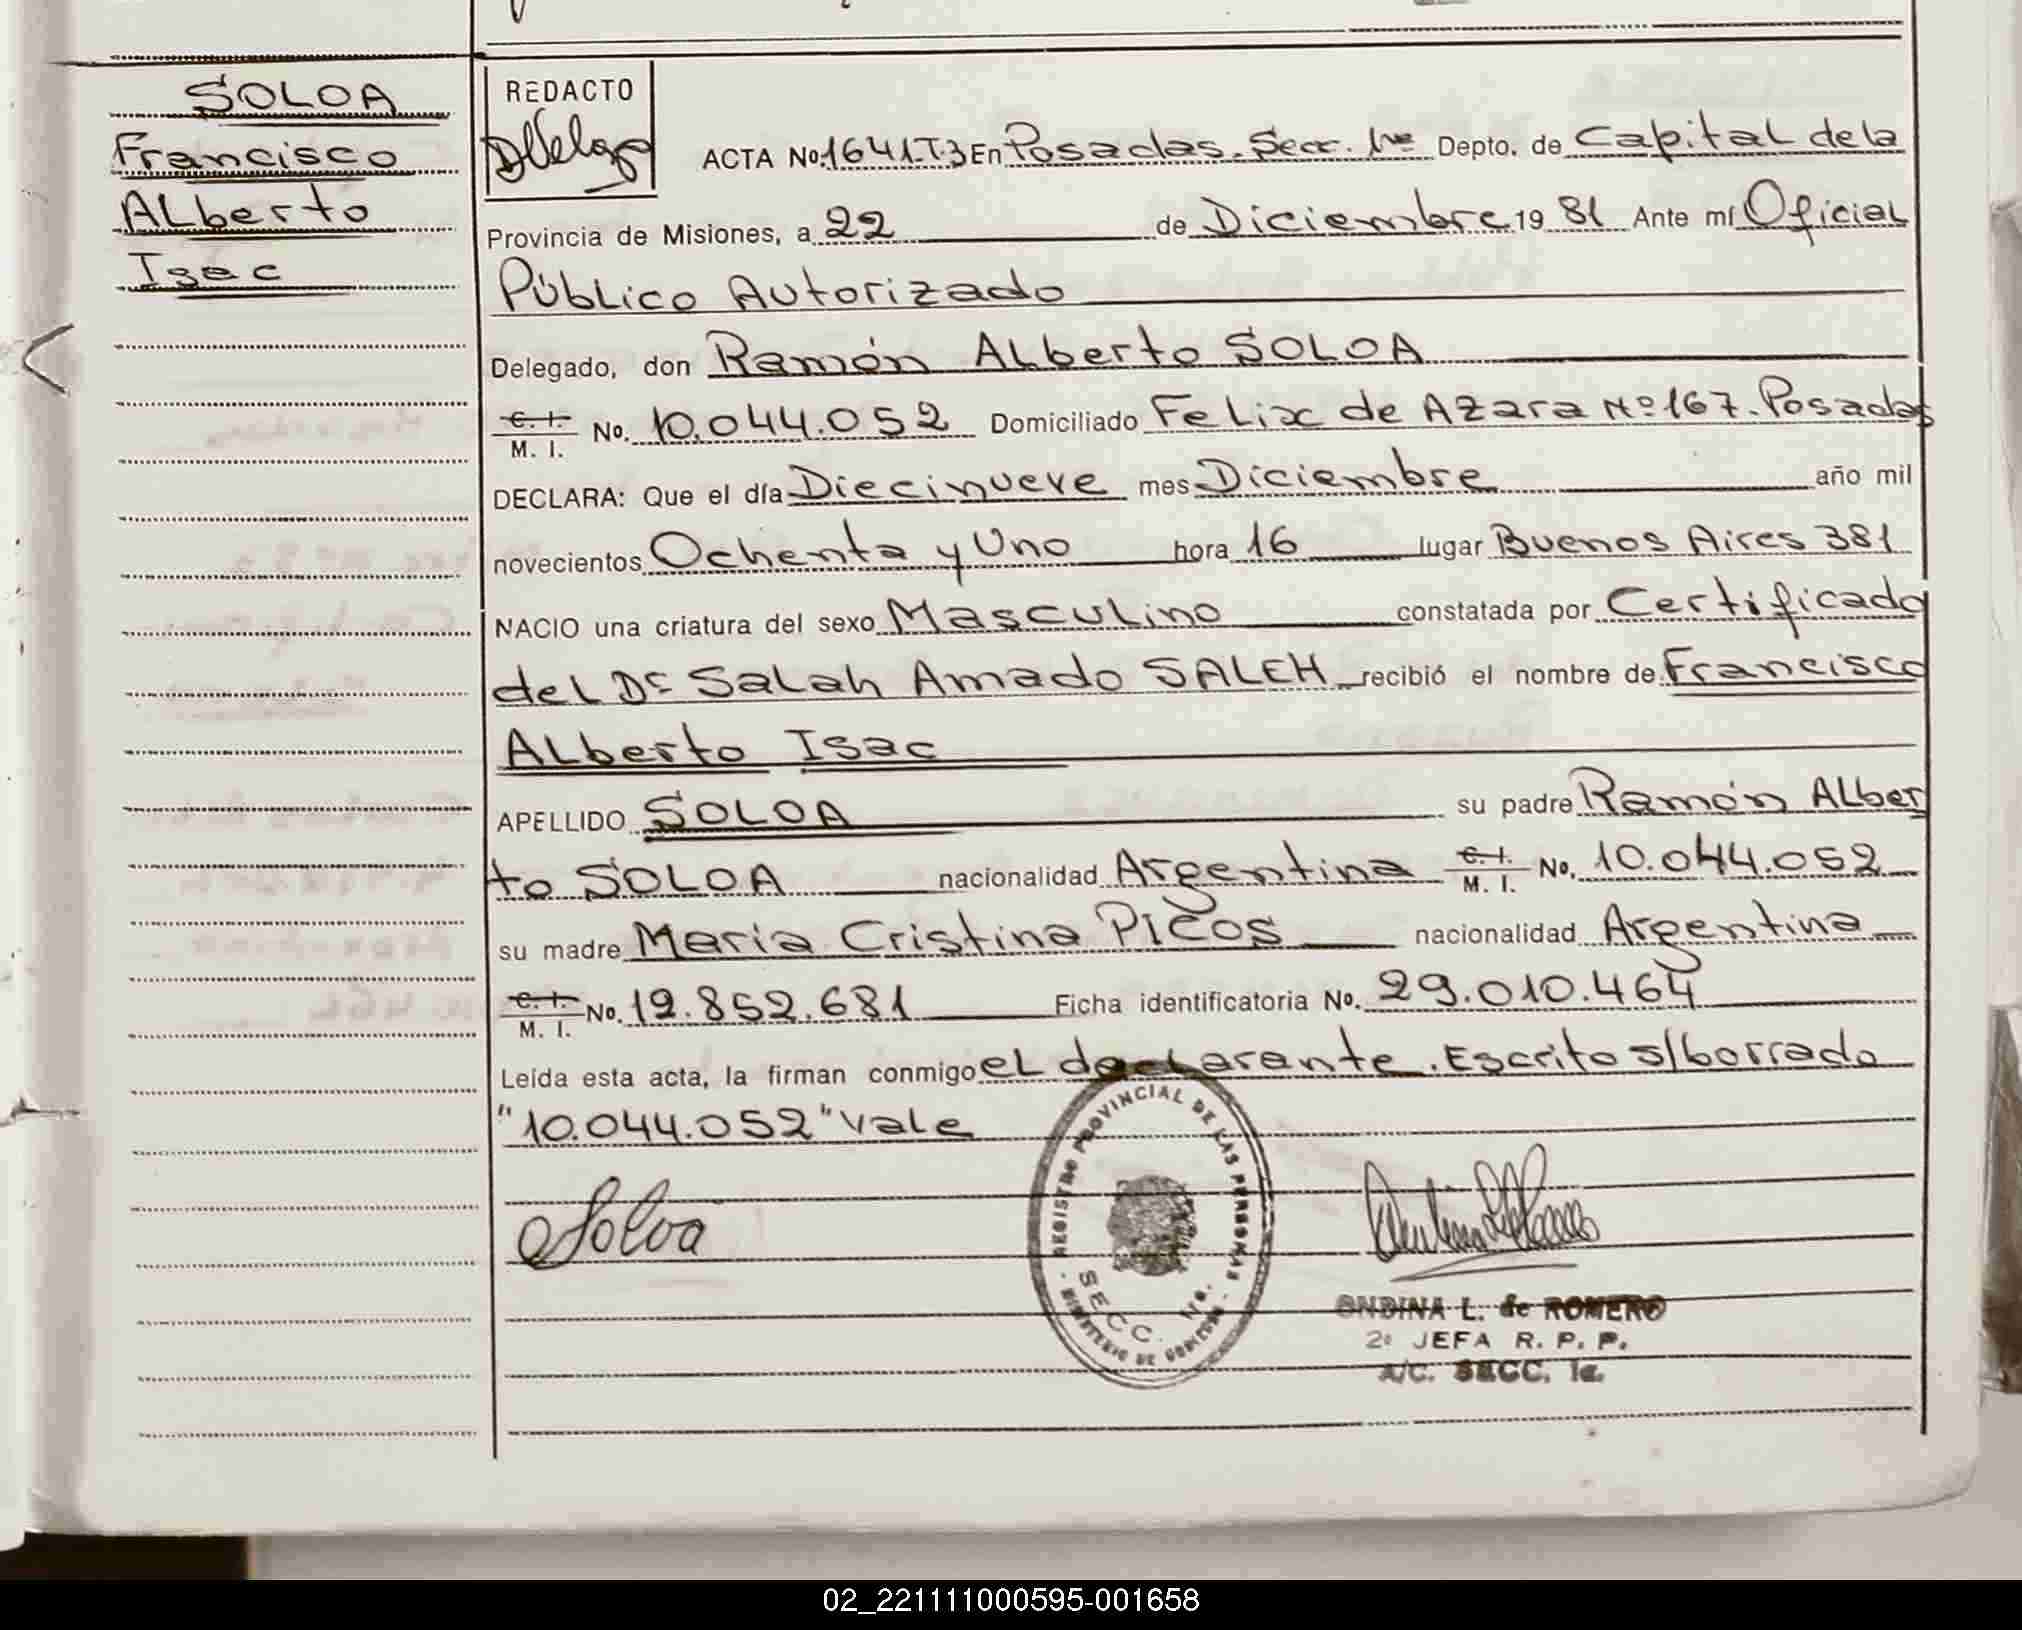 SOLOA
Francisco
Alberto
Isac
REDACTO
ACTA No. 1641.T.3 En Posadas. Secc. 1ra Depto. de Capital de la
Provincia de Misiones, a 22 de Diciembre 19 81 Ante mí Oficial
Público Autorizado
Delegado, don Ramón Alberto SOLOA
C. I.
M. I. No. 10.044.052 Domiciliado Felix de Azara Nº 167. Posadas
DECLARA: Que el día Diecinueve mes Diciembre año mil
novecientos Ochenta y Uno hora 16 lugar Buenos Aires 381
NACIO una criatura del sexo Masculino constatada por Certificado
del Dr Salah Amado SALEH recibió el nombre de Francisco
Alberto Isac
APELLIDO SOLOA su padre Ramón Alber
to SOLOA nacionalidad Argentina C. I. M. I. No. 10.044.052
su madre Maria Cristina PICOS nacionalidad Argentina
C. I.
M. I. No. 12.852.681 Ficha identificatoria No. 29.010.464
Leída esta acta, la firman conmigo el declarante. Escrito s/borrado
"10.044.052" vale
Soloa
REGISTRO PROVINCIAL DE LAS PERSONAS
MINISTERIO DE GOBIERNO
SECC. 1ra.
ONDINA L. de ROMERO
2º JEFA R. P. P.
A/C. SECC. 1a.
02_221111000595-001658